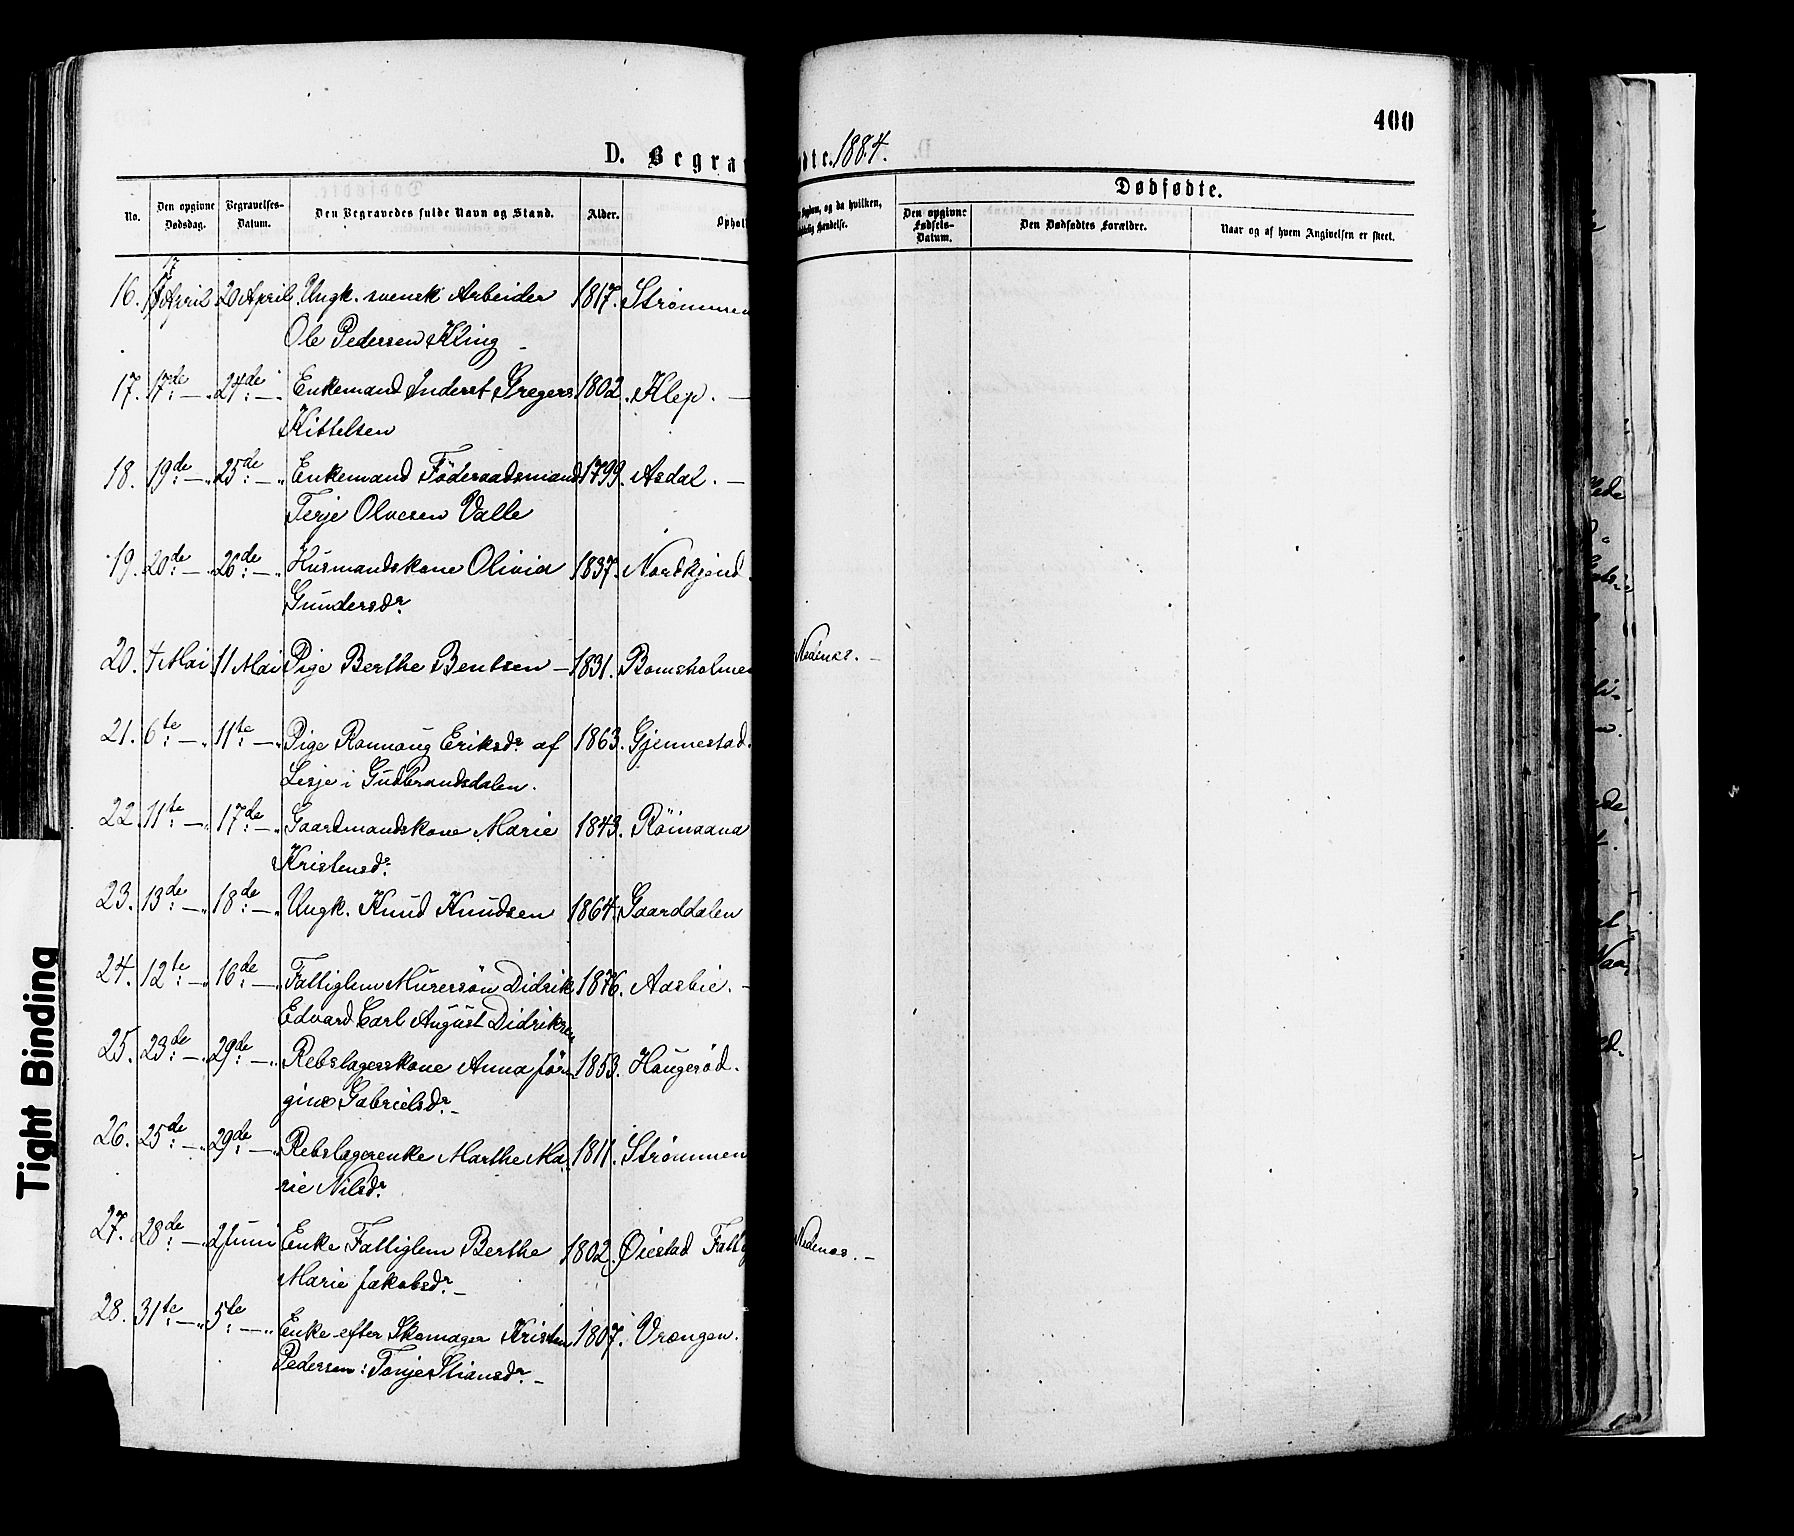 400
D. Begra
dte. 1884.
Dødfødte.
No.
Den opgivne Dødsdag.
Begravelses-Datum.
Den Begravedes fulde Navn og Stand.
Alder.
Ophol
Sygdom, og da hvilken,
Hændelse.
Den opgivne Fødsels-Datum.
Den Dødfødtes Forældre.
Naar og af hvem Angivelsen er skeet.
16. 17 April 20 April. Ungk. svensk Arbeider 1817. Strømmen
Ole Pedersen Kling
17. 17de — 24de — Enkemand Inderst Gregers 1802. Klep. —
Kittelsen
18. 19de — 25de — Enkemand Föderaadsmand 1799. Asdal. —
Terje Olvesen Valle
19. 20de — 26de — Husmandskone Olivia 1837. Nordkjend.
Gundersdr.
20. 4 Mai 11 Mai Pige Berthe Bentsen — 1831. Bomsholmen
Nedenes. —
21. 6te — 11te — Pige Rannaug Eriksdr. af 1863. Gjennestad.
Lesje i Gudbrandsdalen.
22. 11te — 17de — Gaardmandskone Marie 1843. Röinaana
Kristensdr.
23. 13de — 18de — Ungk. Knud Knudsen 1864. Gaarddalen
24. 12te — 16de — Fattiglem Murersön Didrik 1876. Aasbie. —
Edvard Carl August Didriksen
25. 23de — 29de — Rebslagerskone Anna Jör- 1853. Haugeröd.
gine Gabrielsdr. —
26. 25de — 29de — Rebslagerenke Marthe Ma- 1811. Strømmen
rie Nilsdr.
27. 28de — 2 Juni Enke Fattiglem Berthe 1802. Øiestad Fattig
Marie Jakobsdr. —
Nedenes. —
28. 31te — 5te — Enke efter Skomager Kristen 1807. Vrengen.
Pedersen: Tonje Stiansdr. —
Tight Binding